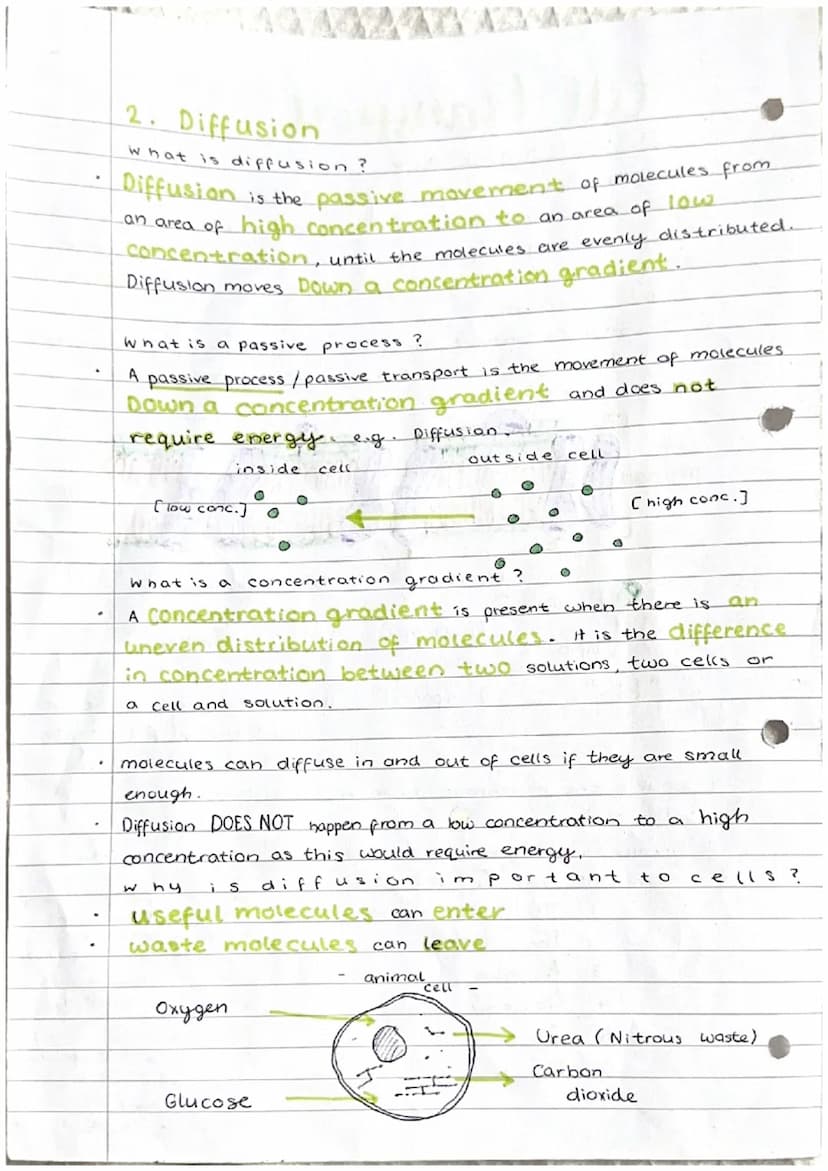 2. Diffusion
What is diffusion?
· Diffusion is the passive movement of molecules from
an area of high concentration to an area of low
concentration, until the molecules are evenly distributed.
Diffusion moves Down a concentration gradient.
What is a passive process?
· A passive process/passive transport is the movement of molecules
Down a concentration gradient and does not
require energy. e.g. Diffusion.
inside cell outside cell
[low conc.] [high conc.]
What is a concentration gradient?
· A concentration gradient is present when there is an
uneven distribution of molecules. it is the difference
in concentration between two solutions, two cells or
a cell and solution.
· molecules can diffuse in and out of cells if they are small
enough.
· Diffusion DOES NOT happen from a low concentration to a high
concentration as this would require energy.
why is diffusion important to cells?
· useful molecules can enter
· waste molecules can leave
- animal
cell -
Oxygen
Urea (Nitrous waste)
Carbon
dioxide
Glucose